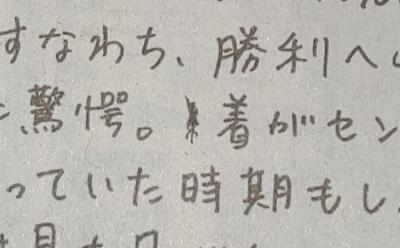 すなわち、勝利へ
驚愕。着がセン
っていた時期もし